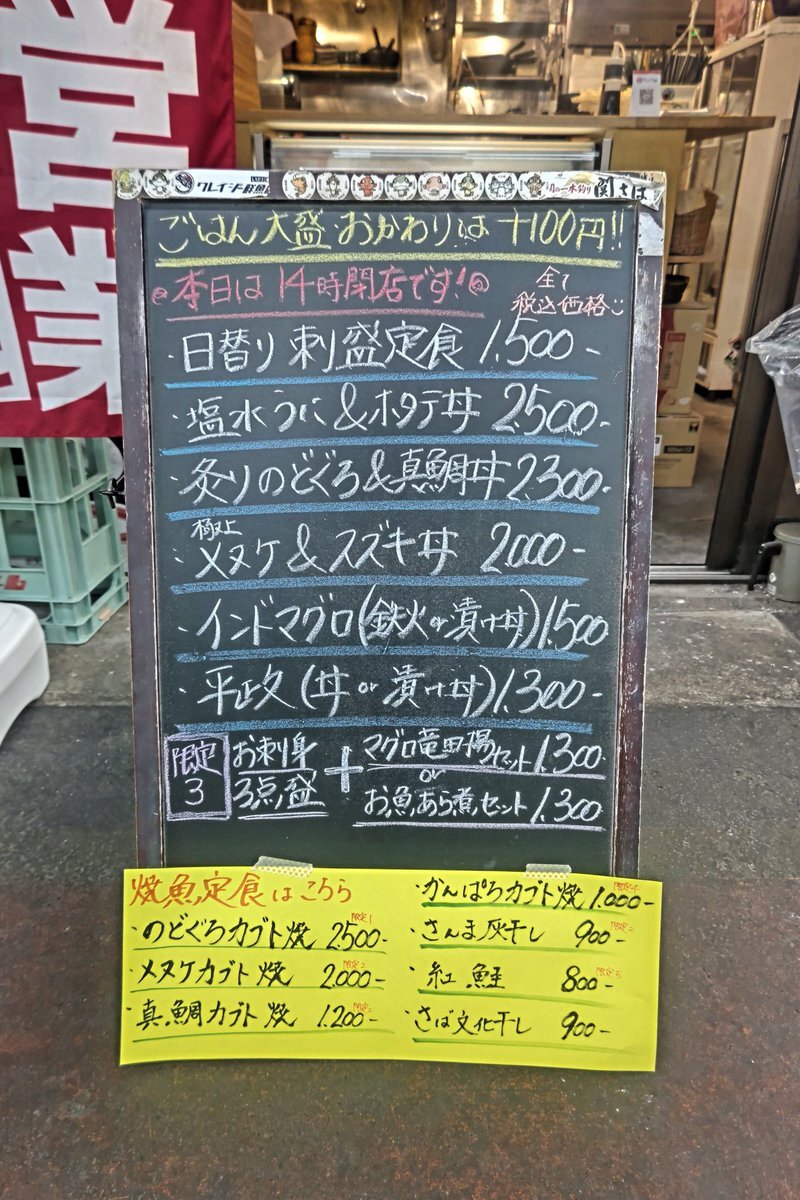 営業
クレイジー鮮魚
関の一本釣り 関さば
ごはん大盛 おかわりは +100円!!
本日は 14時閉店です!
全て
税込価格
・日替り 刺盛定食 1.500-
・塩水うに&ホタテ丼 2.500-
・炙りのどぐろ&真鯛丼 2.300-
極上
・メヌケ&スズキ丼 2.000-
・インドマグロ(鉄火or漬け丼)1.500
・平政(丼 or 漬け丼)1.300-
限定
3
お刺身
3点盛
+
マグロ竜田揚セット 1.300
or
お魚あら煮セット 1.300
焼魚定食はこちら
・のどぐろカブト焼 2.500- 限定1
・メヌケカブト焼 2.000- 限定2
・真鯛カブト焼 1.200-
・かんぱちカブト焼 1.000- 限定4
・さんま灰干し 900- 限定2
・紅鮭 800- 限定5
・さば文化干し 900-